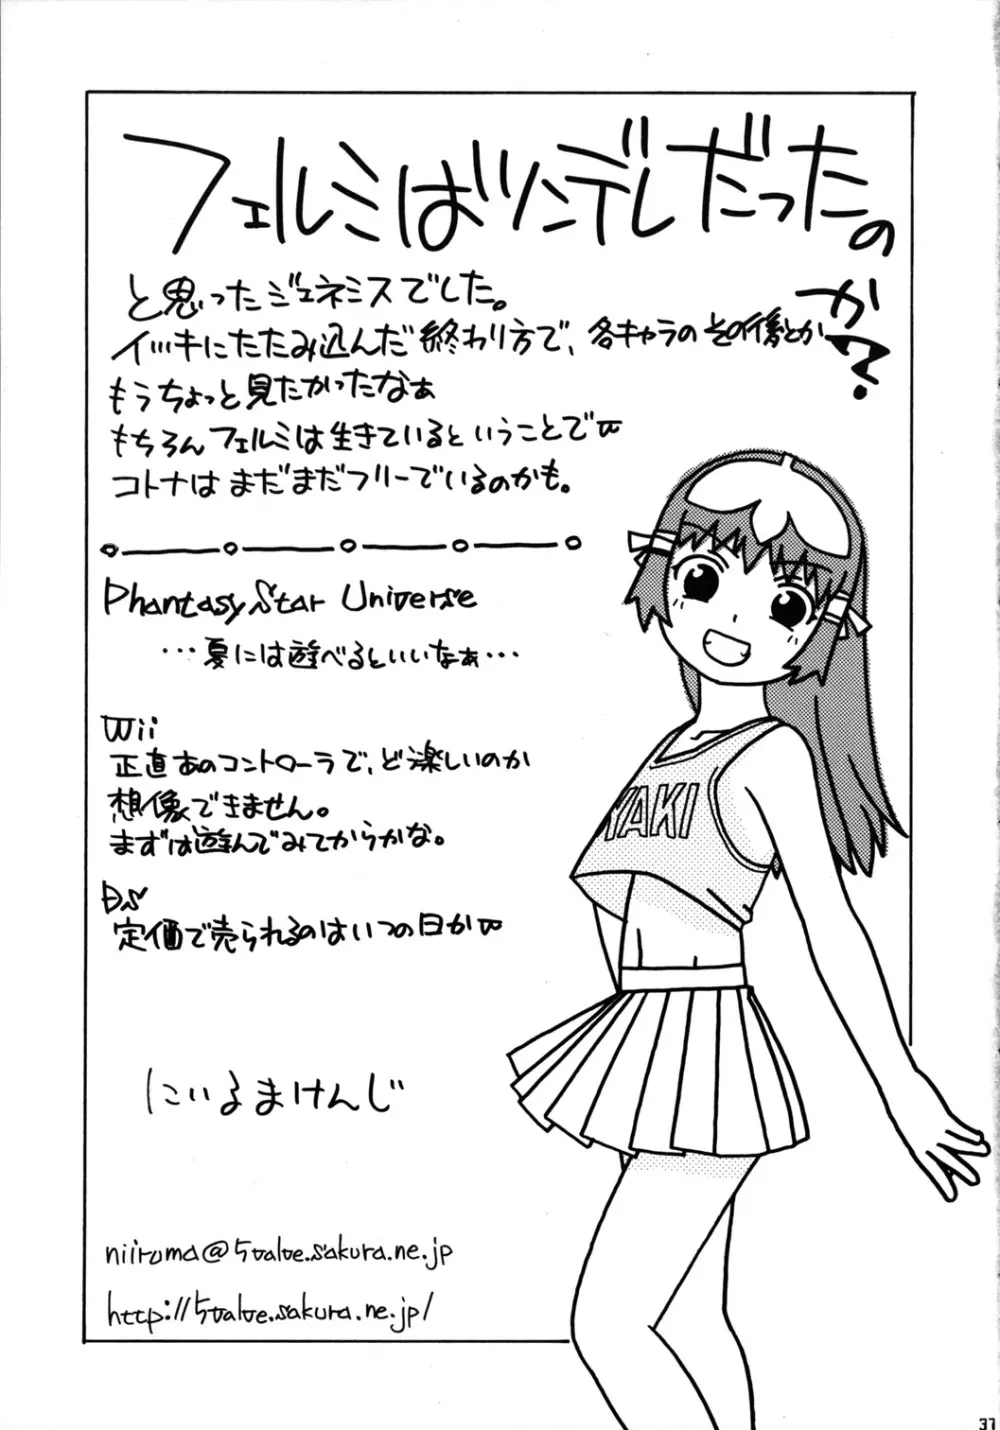 フェルミはツンデレだったのか?
と思ったジェネシスでした。
イッキにたたみ込んだ終わり方で、各キャラのその後とか
もうちょっと見たかったなぁ
もちろんフェルミは生きているということでw
コトナはまだまだフリーでいるのかも。
Phantasy Star Universe
・・・夏には遊べるといいなぁ・・・
Wii
正直あのコントローラで、ど楽しいのか
想像できません。
まずは遊んでみてからかな。
DS
定価で売られるのはいつの日かw
YAKI
にいるまけんじ
niiruma@5value.sakura.ne.jp
http://5value.sakura.ne.jp/
37